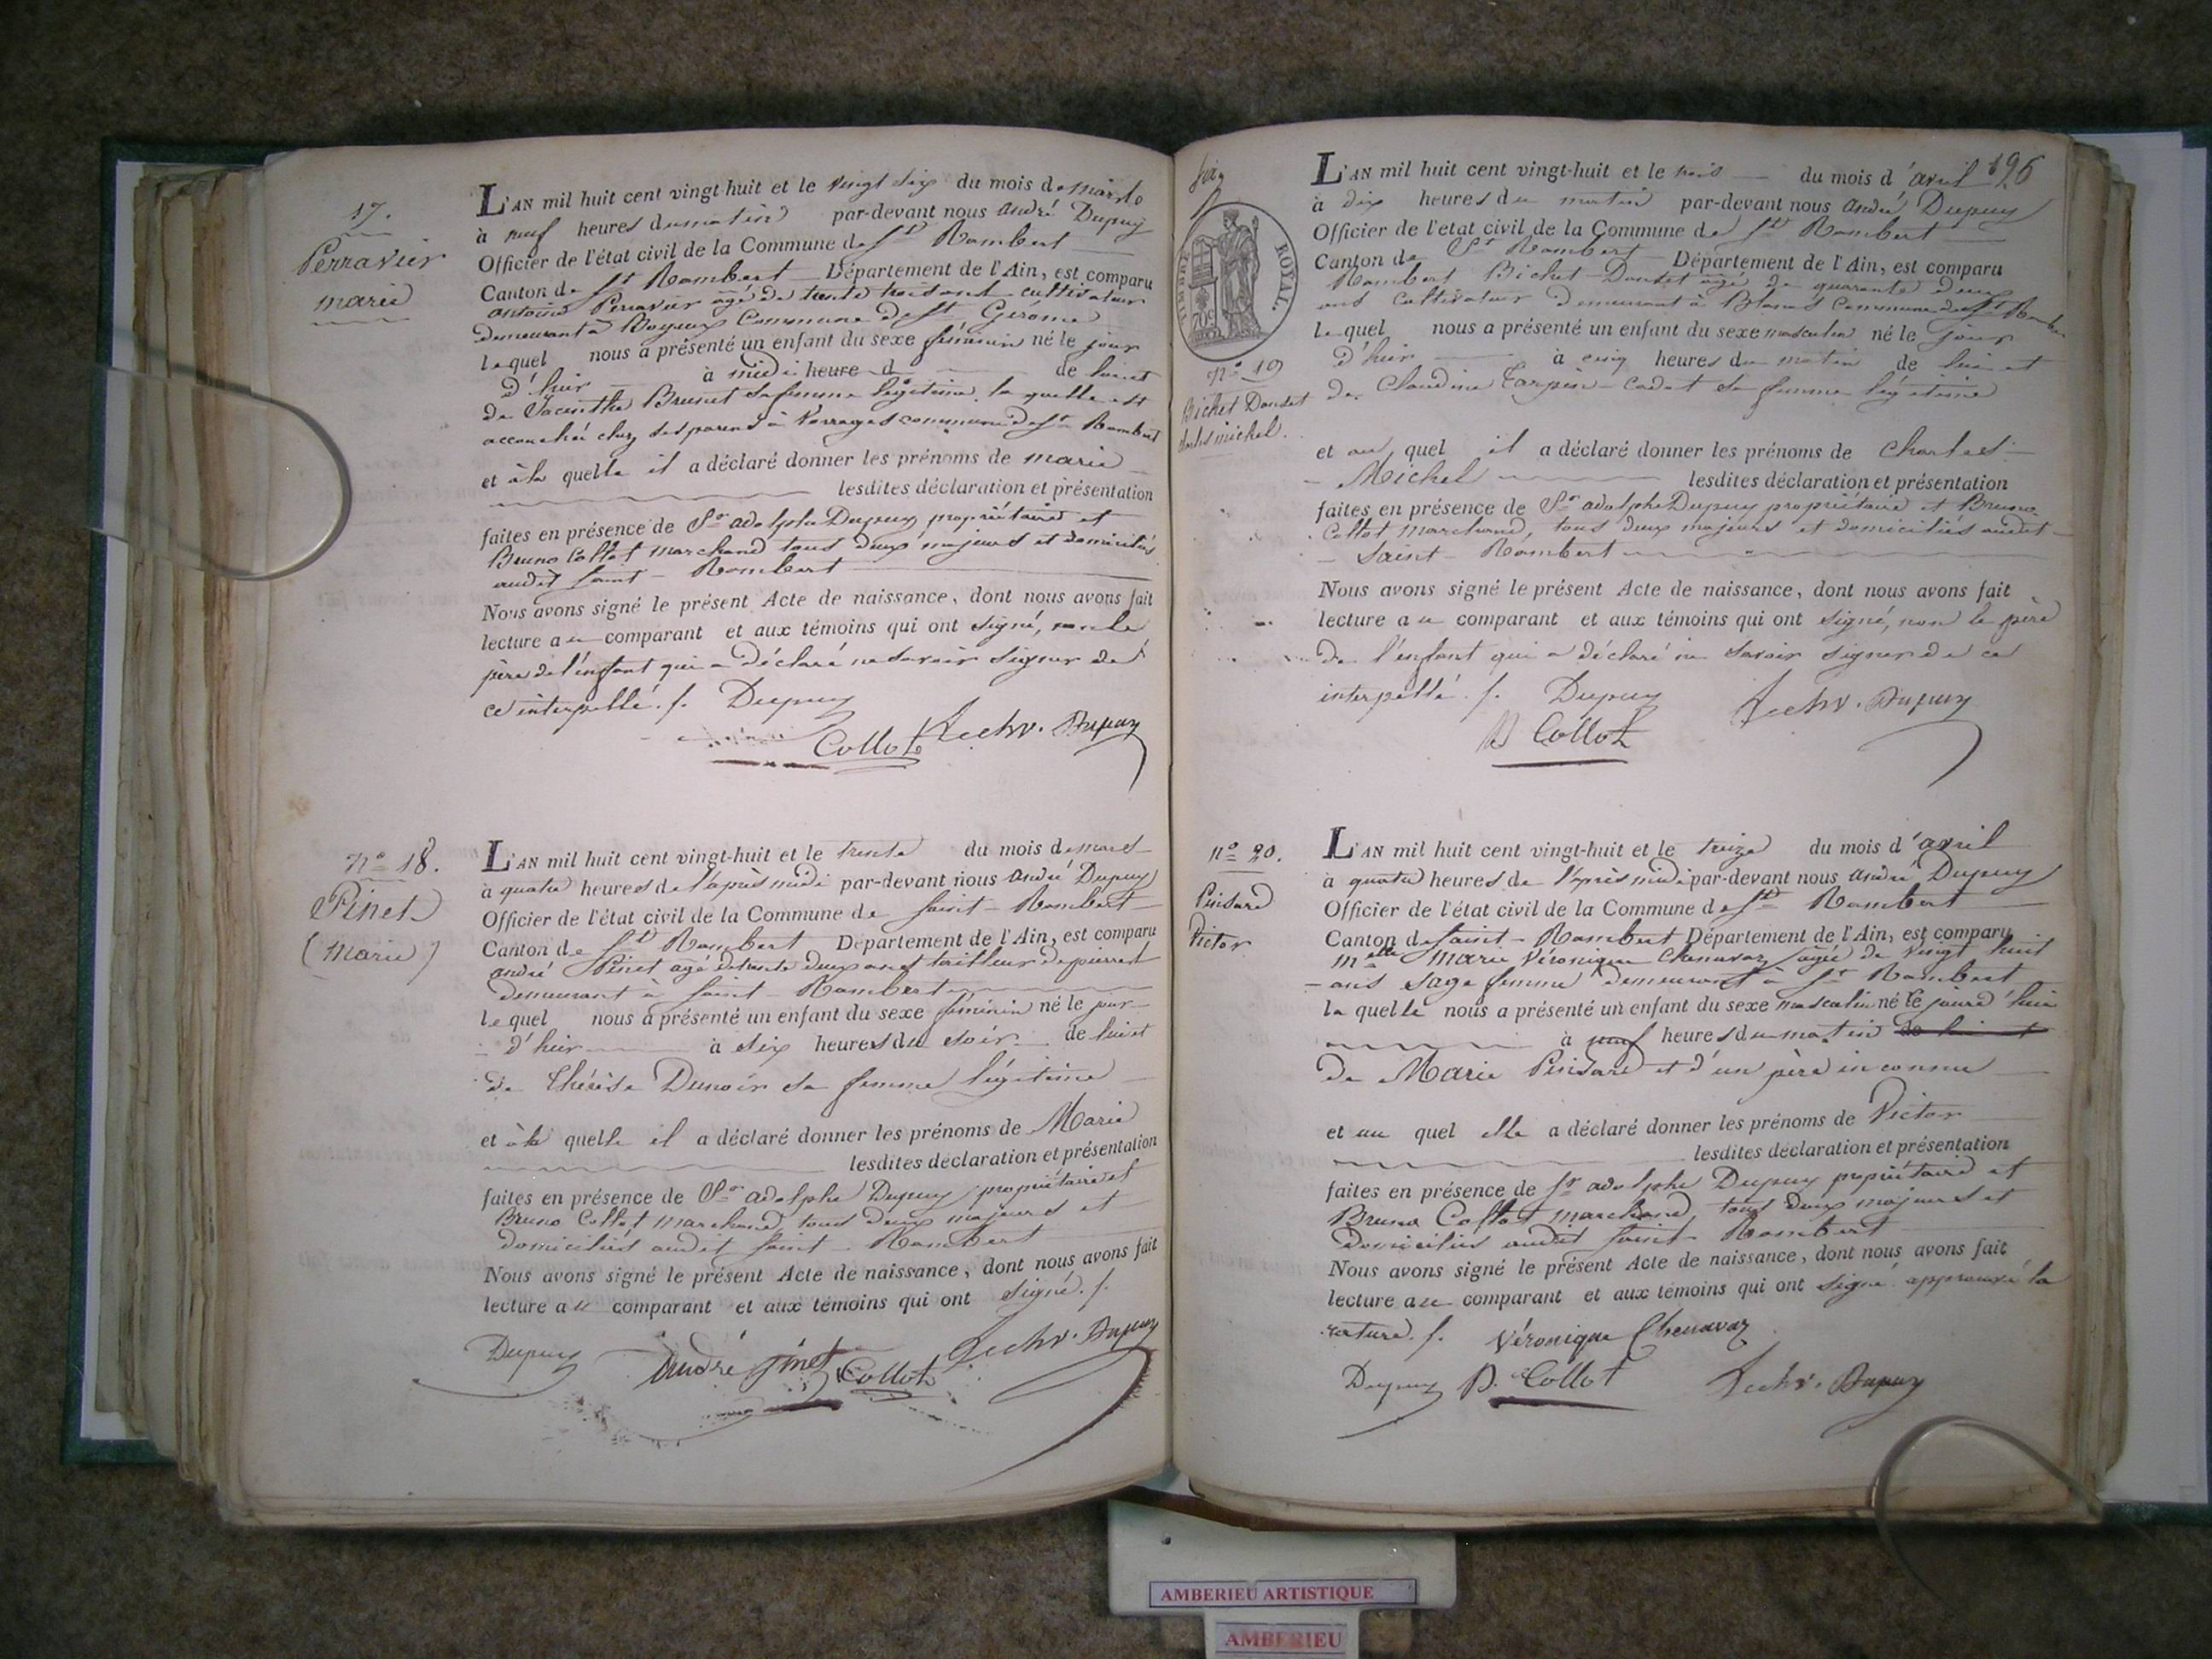 17.
Perravier
marie
L'AN mil huit cent vingt-huit et le vingt six du mois de mars
à neuf heures du matin par-devant nous andré Dupuy
Officier de l'état civil de la Commune de St Rambert
Canton de St Rambert Département de l'Ain, est comparu
antoine Perravier âgé de trente trois ans cultivateur
demeurant à Boyeux Commune de St Gerome
lequel nous a présenté un enfant du sexe féminin né le jour
d'hier à midi heure d de lui et
de Jacinthe Brunet sa femme légitime la quelle est
accouchée chez ses parens à Vorrages commune de St Rambert
et à la quelle il a déclaré donner les prénoms de marie
lesdites déclaration et présentation
faites en présence de Sr adolphe Dupuy propriétaire et
Bruno Collot marchand tous deux majeurs et domiciliés
audit saint - Rambert
Nous avons signé le présent Acte de naissance, dont nous avons fait
lecture au comparant et aux témoins qui ont signé, non le
père de l'enfant qui a déclaré ne savoir signer de
ce interpellé. /. Dupuy
Collot Dupuy
no 18.
Pinet
(Marie)
L'AN mil huit cent vingt-huit et le trente du mois de mars
à quatre heures de l'après midi par-devant nous andré Dupuy
Officier de l'état civil de la Commune de saint - Rambert
Canton de St Rambert Département de l'Ain, est comparu
andré Pinet âgé de trente deux ans tailleur de pierres
demeurant à saint - Rambert
lequel nous a présenté un enfant du sexe féminin né le jour
d'hier à six heures du soir de lui et
de Thérèse Dunoir sa femme légitime
et à la quelle il a déclaré donner les prénoms de Marie
lesdites déclaration et présentation
faites en présence de Sr adolphe Dupuy propriétaire et
Bruno Collot marchand, tous deux majeurs et
domiciliés audit saint - Rambert
Nous avons signé le présent Acte de naissance, dont nous avons fait
lecture au comparant et aux témoins qui ont signé. /.
Dupuy André pinet Collot Dupuy
196
TIMBRE ROYAL
70c
no 19
Bichet Doudet
charles michel.
L'AN mil huit cent vingt-huit et le trois du mois d'avril
à dix heures du matin par-devant nous andré Dupuy
Officier de l'etat civil de la Commune de St Rambert
Canton de St Rambert Département de l'Ain, est comparu
Rambert Bichet Doudet âgé de quarante deux
ans cultivateur demeurant à Blanas Commune de St Rambert
lequel nous a présenté un enfant du sexe masculin né le jour
d'hier à cinq heures du matin de lui et
de Claudine Tarpin - cadet sa femme légitime
et au quel il a déclaré donner les prénoms de Charles
Michel lesdites déclaration et présentation
faites en présence de Sr adolphe Dupuy propriétaire et Bruno
Collot marchand, tous deux majeurs et domiciliés audit
saint - Rambert
Nous avons signé le présent Acte de naissance, dont nous avons fait
lecture au comparant et aux témoins qui ont signé, non le père
de l'enfant qui a déclaré ne savoir signer de ce
interpellé. /. Dupuy Dupuy
B Collot
no 20.
Pinsard
Victor
L'AN mil huit cent vingt-huit et le treize du mois d'avril
à quatre heures de l'après midi par-devant nous andré Dupuy
Officier de l'état civil de la Commune de St Rambert
Canton de saint - Rambert Département de l'Ain, est comparu
melle Marie Véronique Chenavaz âgée de vingt huit
ans sage femme demeurant à St Rambert
la quelle nous a présenté un enfant du sexe masculin né le jour d'hier
à neuf heures du matin de lui et
de Marie Pinsard et d'un père inconnu
et au quel elle a déclaré donner les prénoms de Victor
lesdites déclaration et présentation
faites en présence de Sr adolphe Dupuy propriétaire et
Bruno Collot marchand, tous deux majeurs et
domiciliés audit saint - Rambert
Nous avons signé le présent Acte de naissance, dont nous avons fait
lecture au comparant et aux témoins qui ont signé. approuvé la
rature. /. Véronique Chenavaz
Dupuy B. Collot Dupuy
AMBERIEU ARTISTIQUE
AMBERIEU